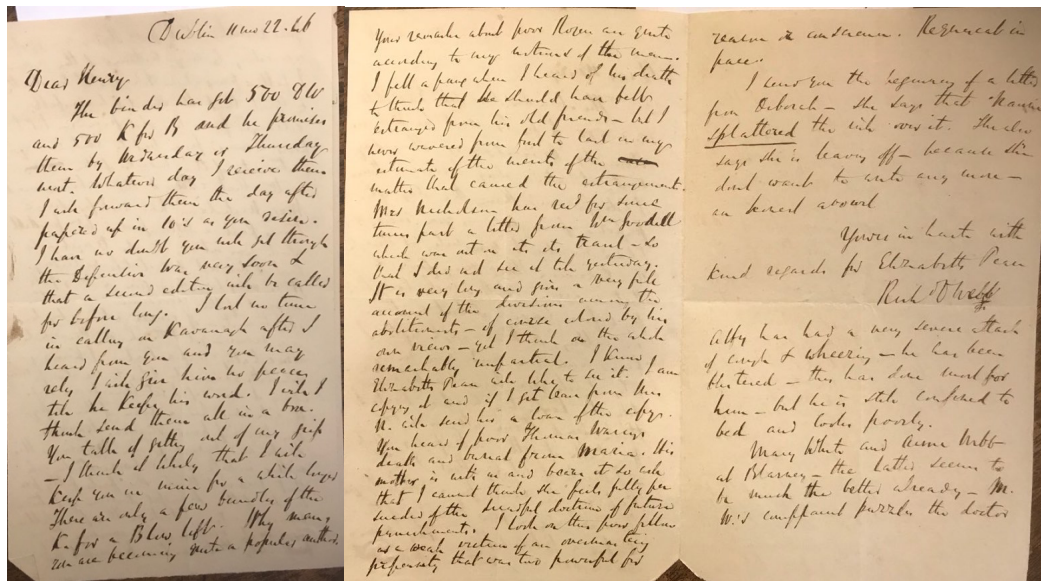 Dublin 11 mo 22. 46
Dear Henry
The binder has got 500 D W
and 500 K for B and he promises
them by Wednesday or Thursday
next. Whatever day I receive them
I will forward them the day after
papered up in 10's as you desire.
I have no doubt you will get through
the Defensive War very soon &
that a second edition will be called
for before long. I lost no time
in calling on Kavanagh after I
heard from you and you may
rely I will give him no peace
till he keeps his word. I will I
think send them all in a box.
You talk of getting out of my grip
– I think it likely that I will
keep you in mine for a while longer
There are only a few bundles of the
K. for a Blow left. Why man,
you are becoming quite a popular author.
Your remarks about poor Rogers are quite
according to my notions of the man.
I felt a pang when I heard of his death
to think that he should have felt
estranged from his old friends – but I
never wavered from first to last in my
estimate of the merits of the
matter that caused the estrangement.
Mrs Nicholson has recd for some
time past a letter from Wm Goodell
which was out on its travel – so
that I did not see it till yesterday.
It is very long and gives a very full
account of the divisions among the
abolitionists – of course colored by his
own views – yet I think on the whole
remarkably impartial. I know
Elizabeth Pease will like to see it. I am
copying it and if I get leave from Mrs
N. will send her a loan of the copy.
You heard of poor Thomas Waring's
death and burial from Maria. His
mother is with us and bears it so well
that I cannot think she feels fully per
suaded of the fearful doctrine of future
punishments. I look on this poor fellow
as a weak victim of an overmastering
propensity that was too powerful for
reason or conscience. Requiescat in
pace.
I send you the beginning of a letter
from Deborah – she says that
splattered the ink over it. She also
says she is leaving off – because she
dont want to write any more –
an honest avowal
Yours in haste with
kind regards for Elizabeth Pease
Richd D Webb
Alfy has had a very severe attack
of cough & wheezing – he has been
blistered – this has done most for
him – but he is still confined to
bed and looks poorly.
Mary White and Anne Webb
at Blarney – the latter seems to
be much the better already – M.
W.'s complaint puzzles the doctor